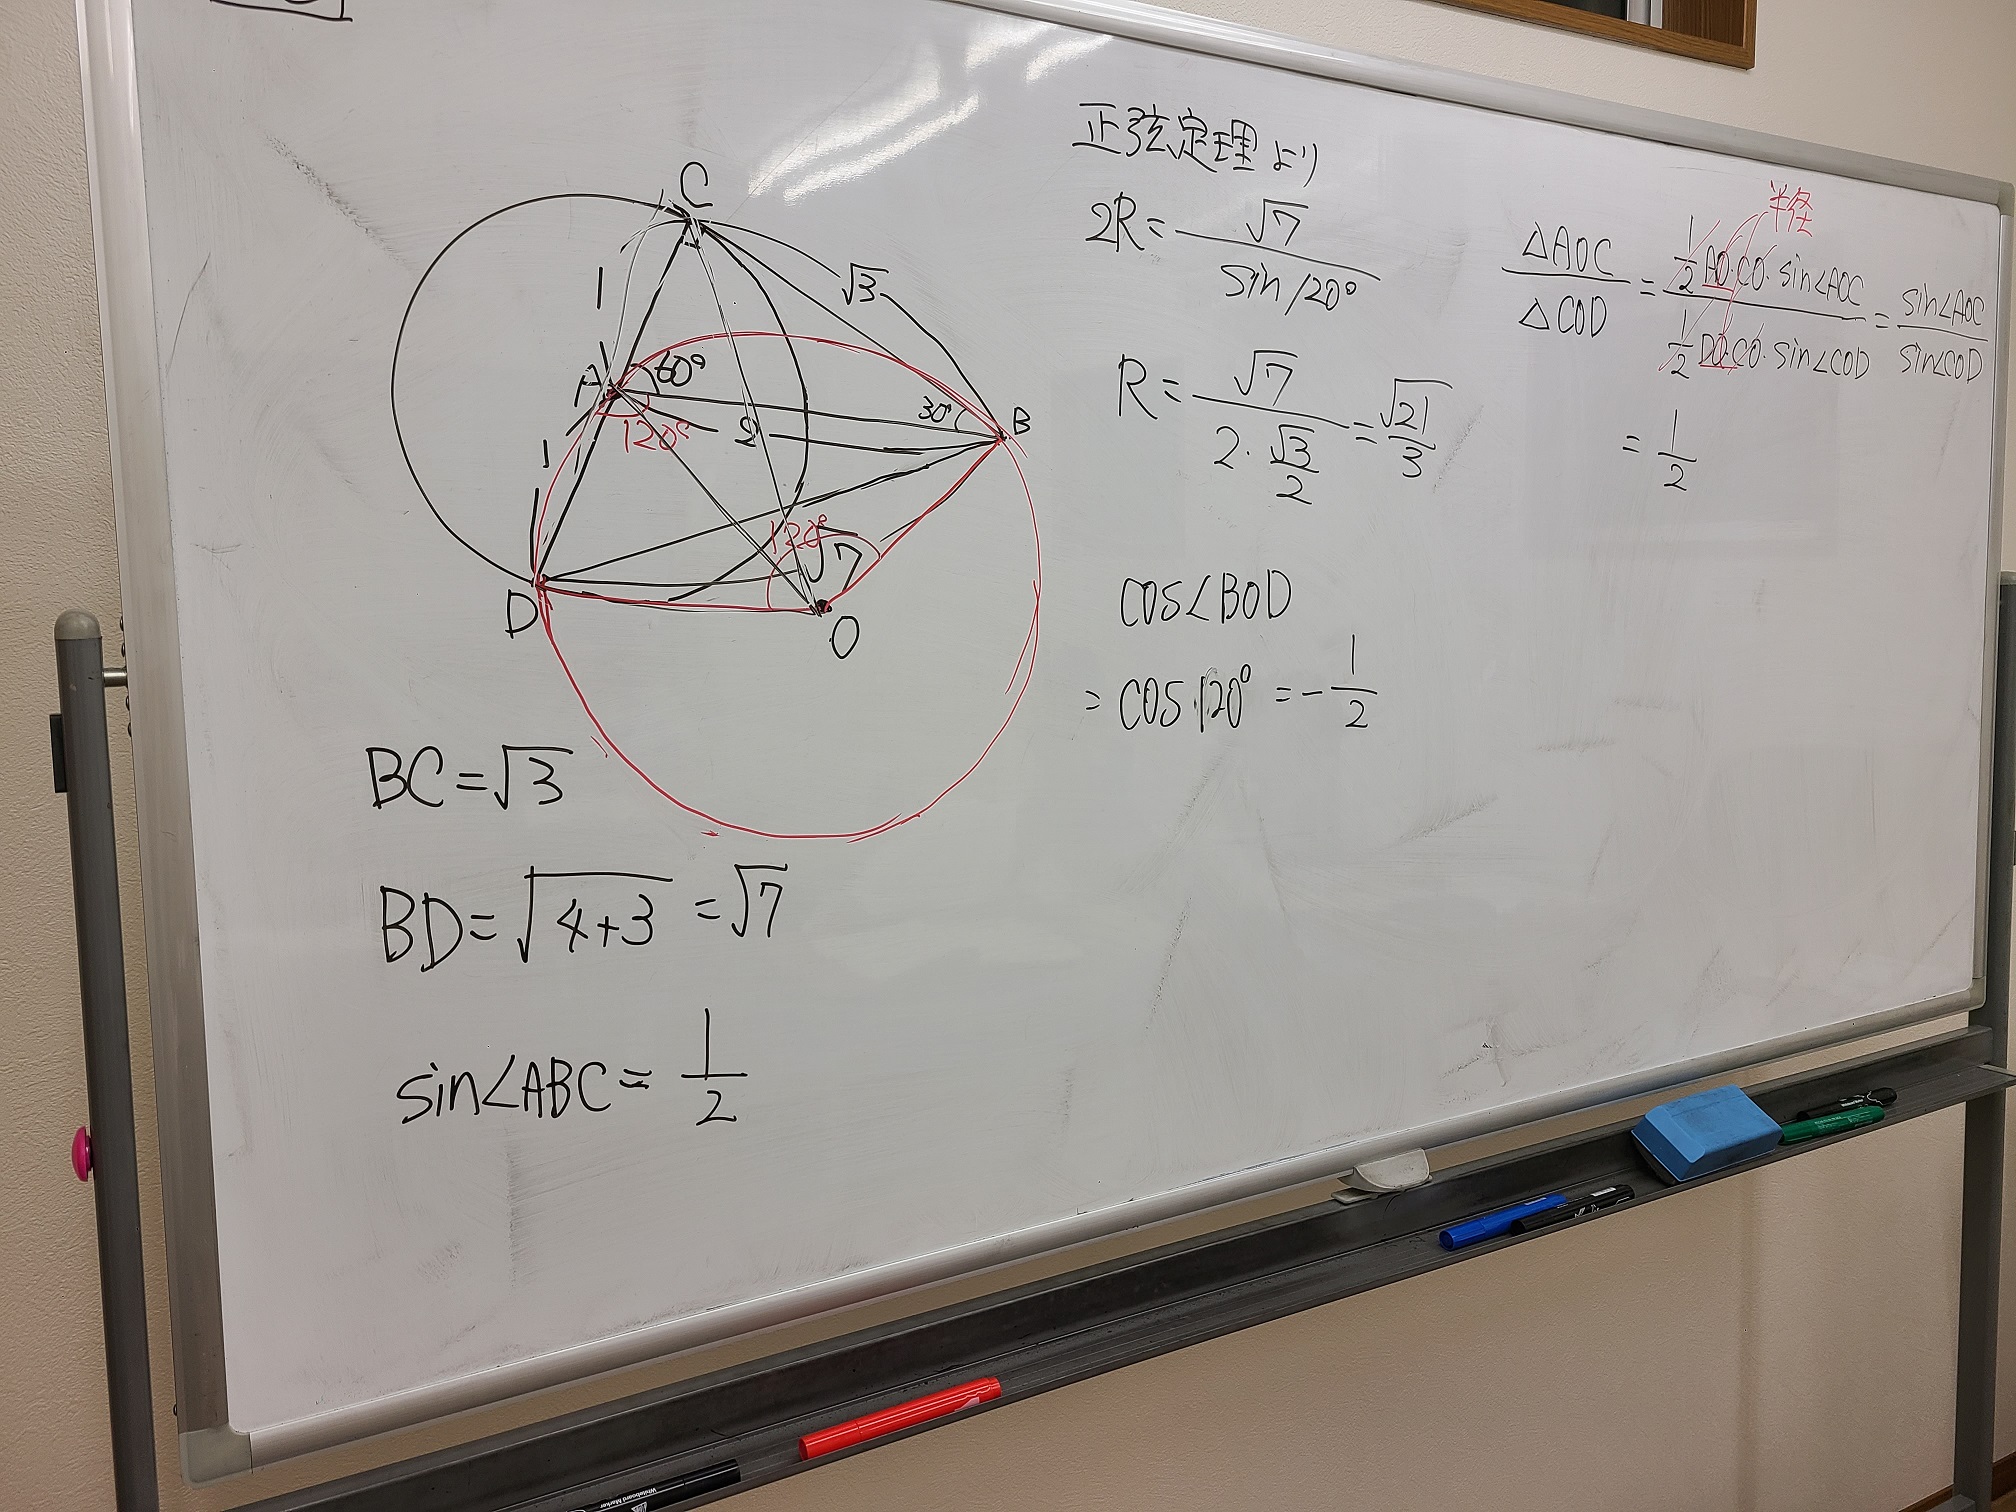 C
1
√3
A
60°
30°
B
120°
2
1
120°
√7
D
O
BC=√3
BD=√4+3 =√7
sin∠ABC= 1/2
正弦定理より
2R= √7/sin120°
R= √7/(2・√3/2) = √21/3
cos∠BOD
= cos120° = -1/2
半径
△AOC/△COD = (1/2 AO・CO・sin∠AOC)/(1/2 DO・CO・sin∠COD) = sin∠AOC/sin∠COD
= 1/2